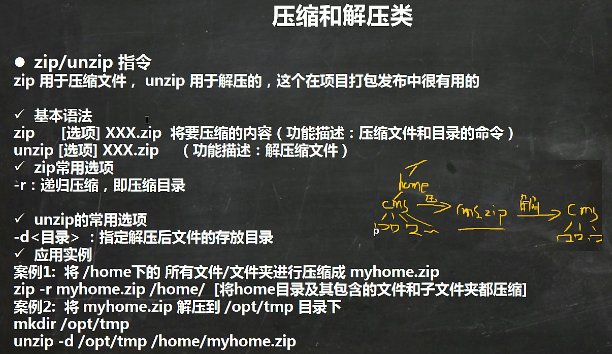 压缩和解压类
● zip/unzip 指令
zip 用于压缩文件， unzip 用于解压的，这个在项目打包发布中很有用的
✓ 基本语法
zip [选项] XXX.zip 将要压缩的内容（功能描述：压缩文件和目录的命令）
unzip [选项] XXX.zip （功能描述：解压缩文件）
✓ zip常用选项
-r：递归压缩，即压缩目录
✓ unzip的常用选项
-d<目录> ：指定解压后文件的存放目录
✓ 应用实例
案例1: 将 /home下的 所有文件/文件夹进行压缩成 myhome.zip
zip -r myhome.zip /home/ [将home目录及其包含的文件和子文件夹都压缩]
案例2: 将 myhome.zip 解压到 /opt/tmp 目录下
mkdir /opt/tmp
unzip -d /opt/tmp /home/myhome.zip
home
cms
cms.zip
cms